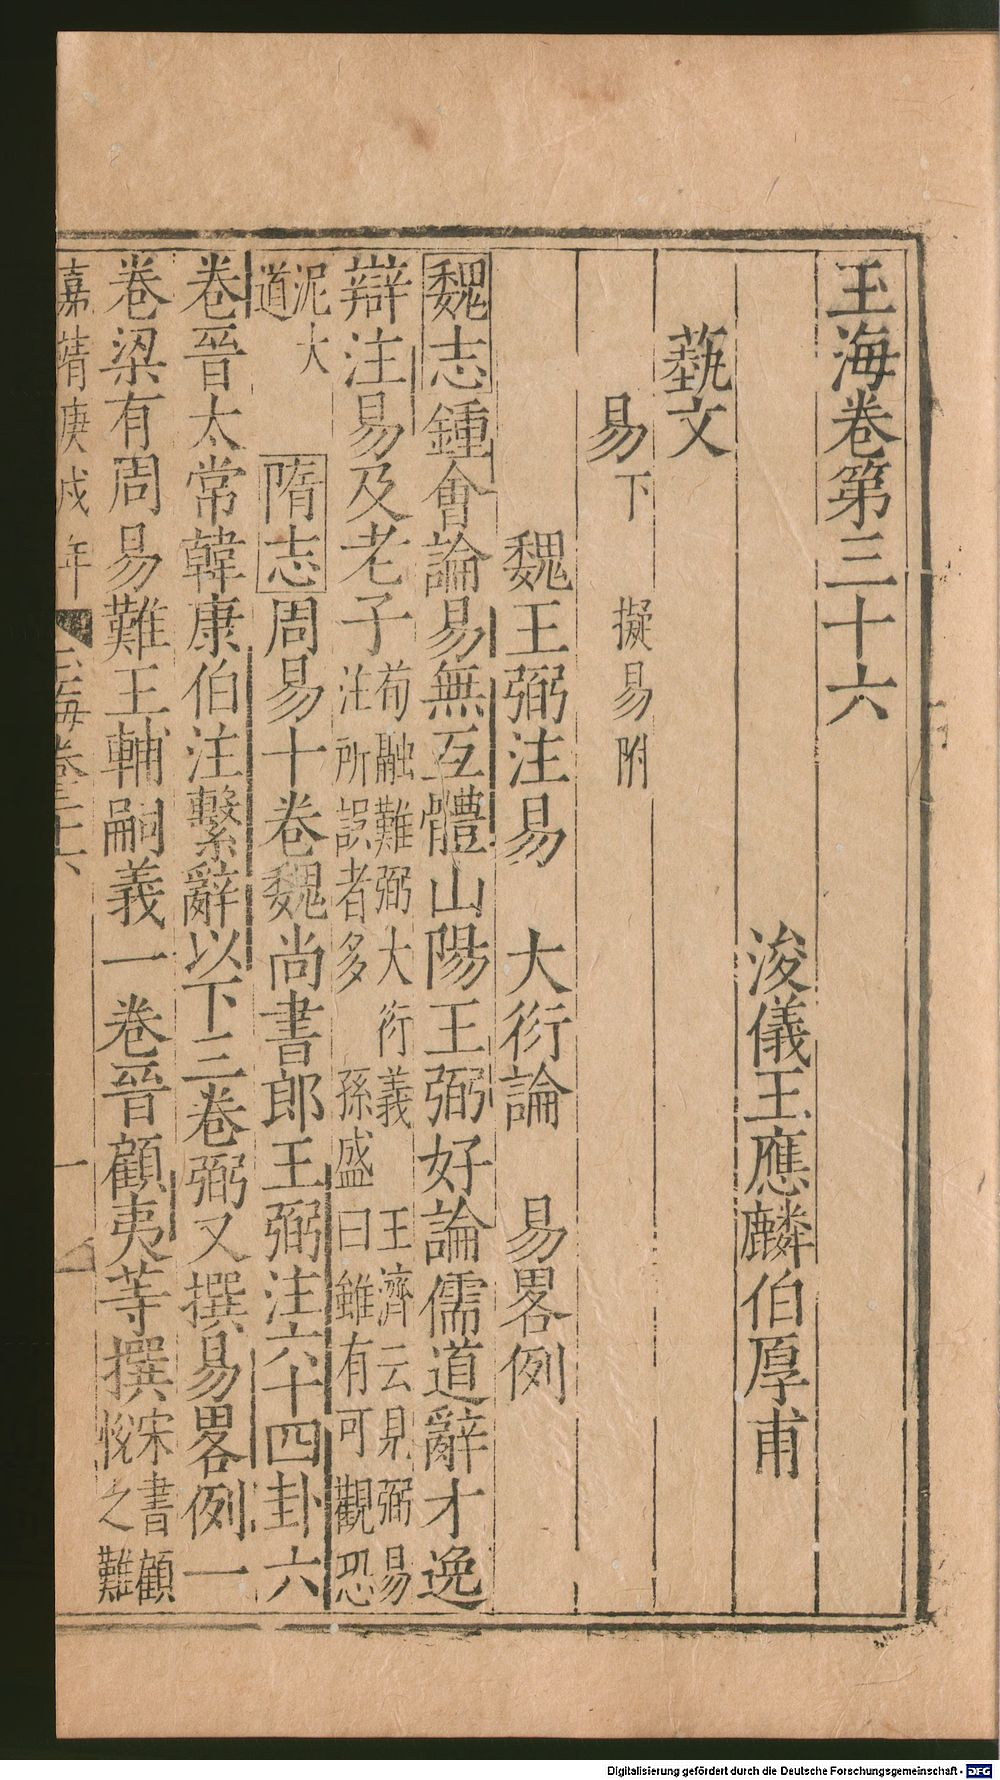 玉海卷第三十六
浚儀王應麟伯厚甫
藝文
易下 擬易附
魏王弼注易 大衍論 易畧例
魏志鍾會論易無互體山陽王弼好論儒道辭才逸
辯注易及老子荀融難弼大衍義 王濟云見弼易
注所誤者多 孫盛曰雖有可觀恐
泥大
道 隋志周易十卷魏尚書郎王弼注六十四卦六
卷晉太常韓康伯注繫辭以下三卷弼又撰易畧例一
卷梁有周易難王輔嗣義一卷晉顧夷等撰宋書顧
悅之難
嘉靖庚戌年 玉海卷三十六 一
Digitalisierung gefördert durch die Deutsche Forschungsgemeinschaft - DFG